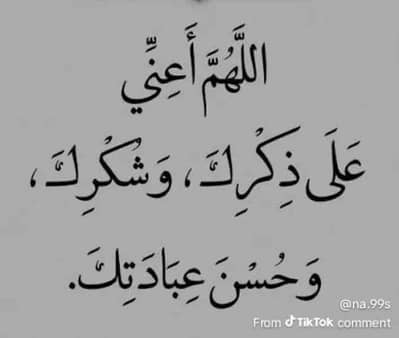 اللَّهُمَّ أَعِنِّي
عَلَى ذِكْرِكَ، وَشُكْرِكَ،
وَحُسْنَ عِبَادَتِكَ.
@na.99s
From TikTok comment